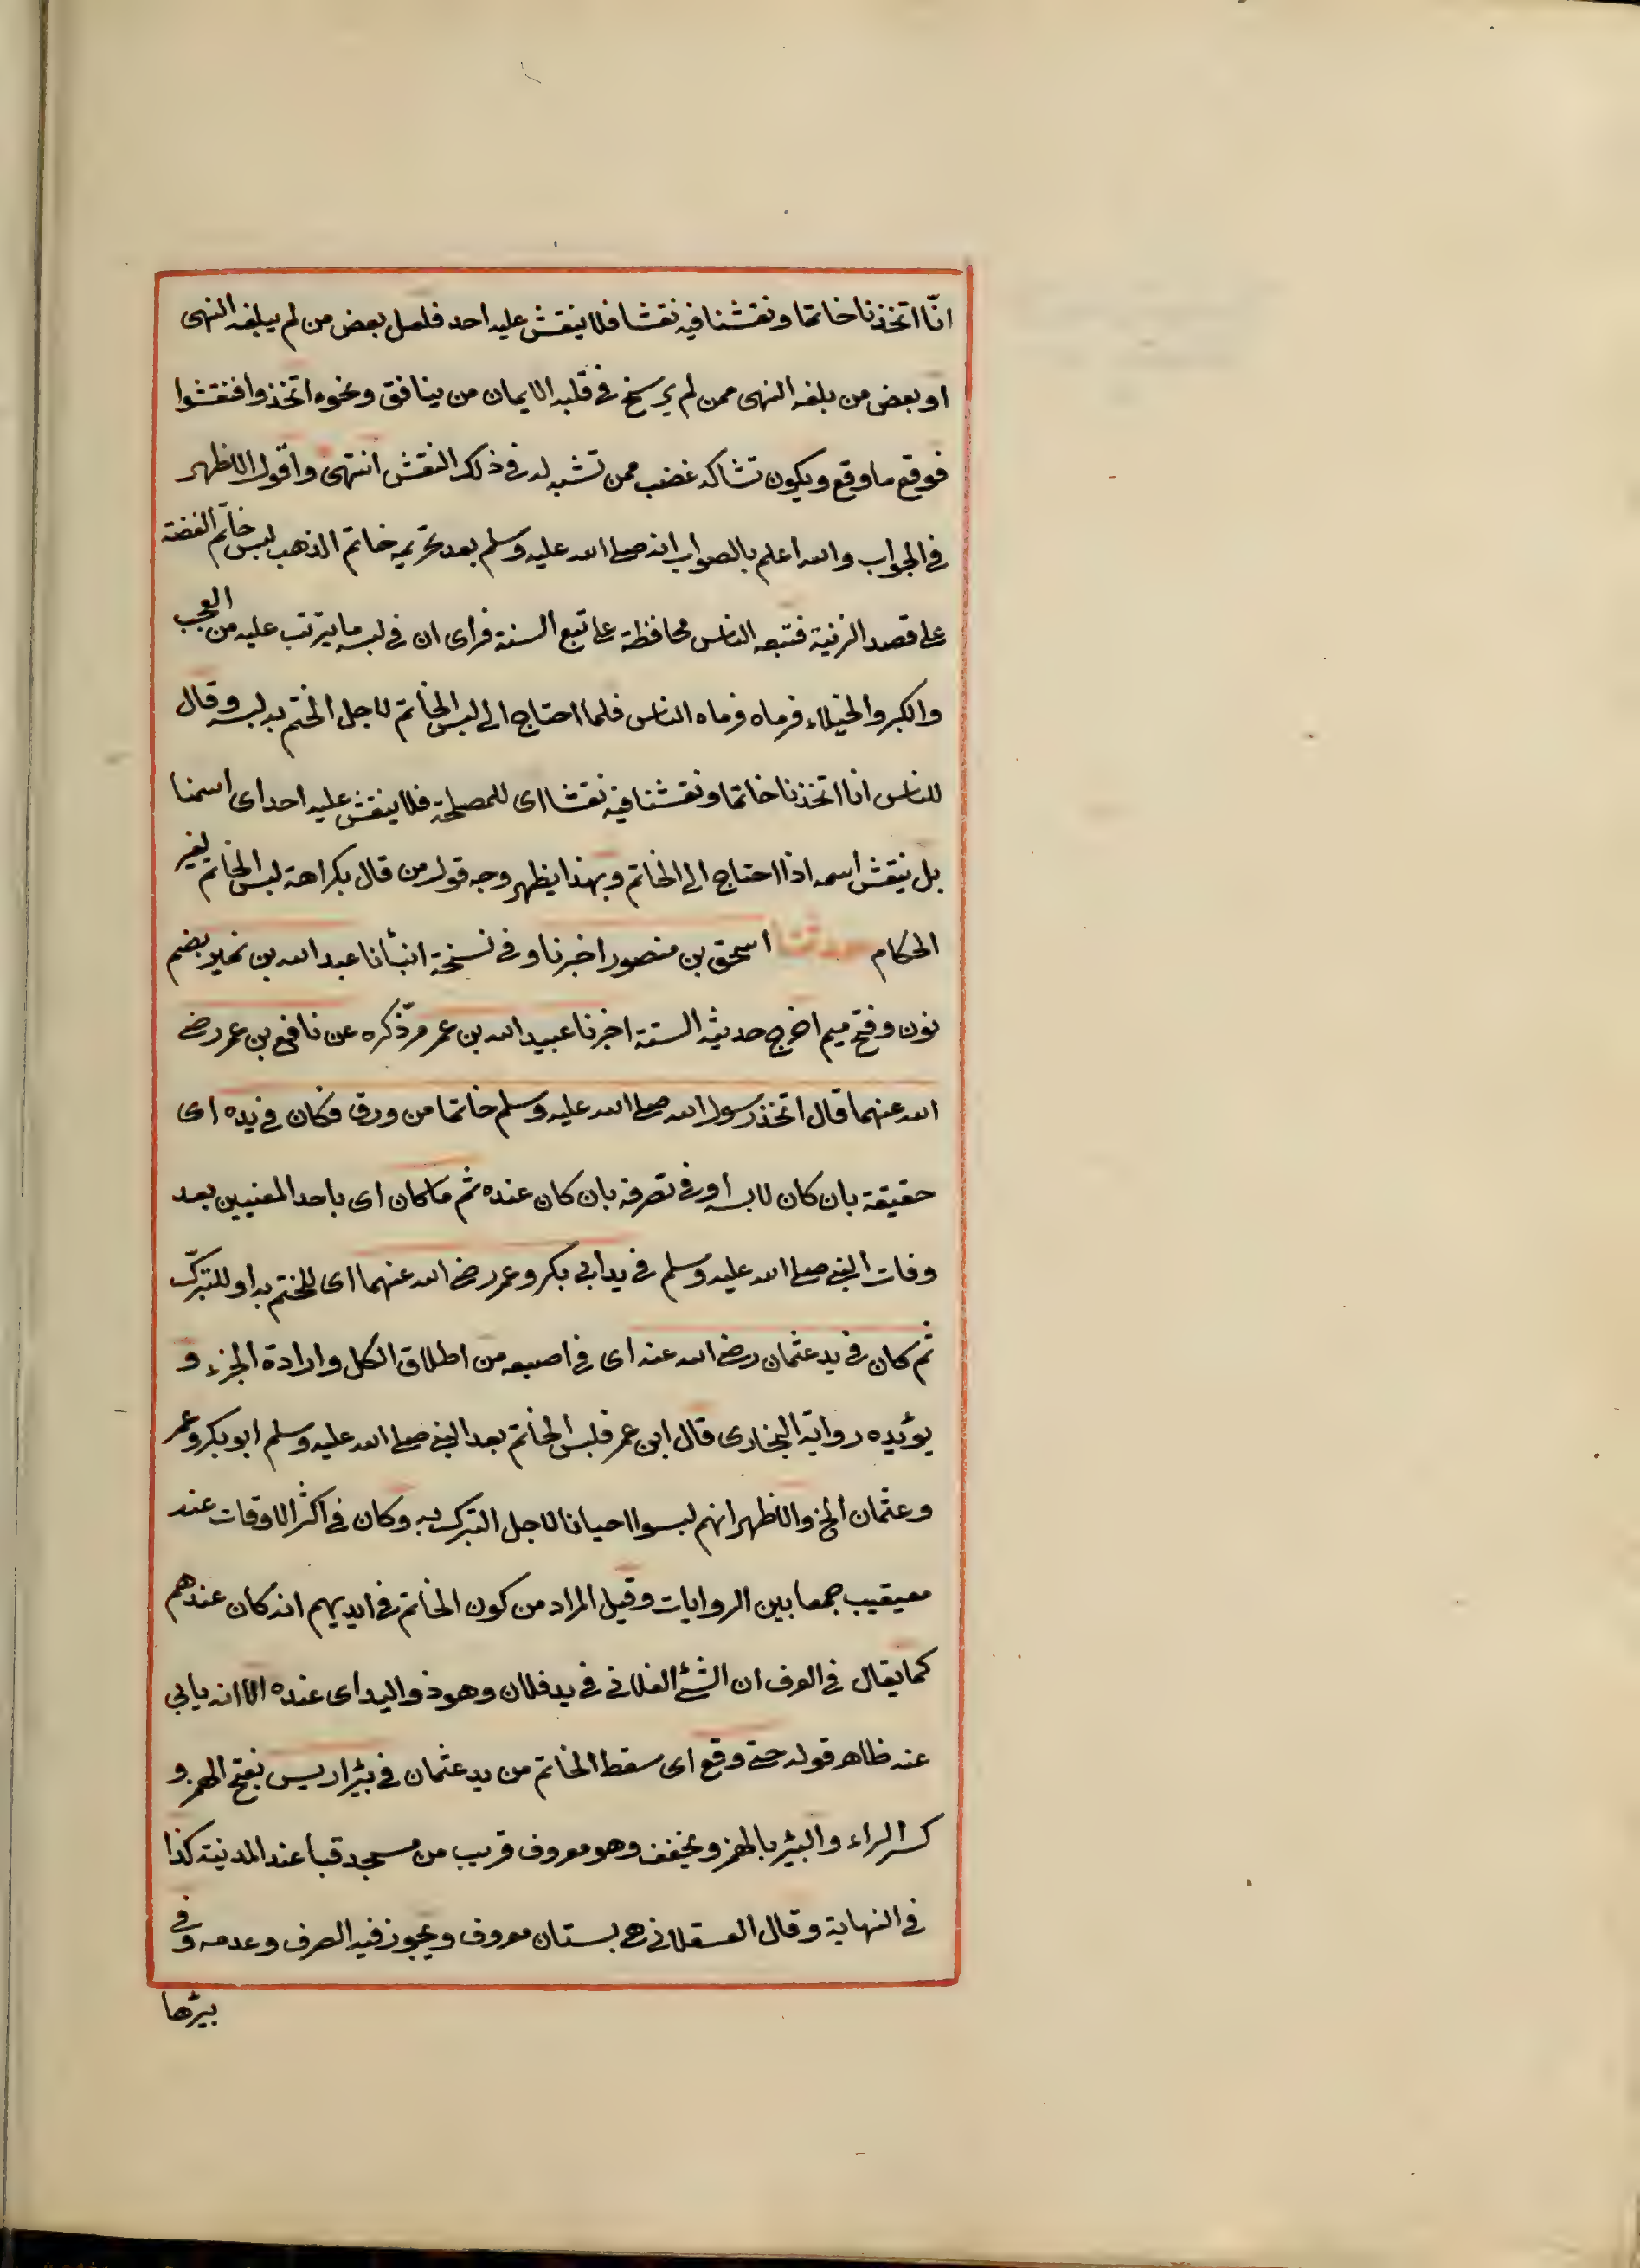 انّا اتخذنا خاتما ونقشنا فيه نقشا فلا ينقش عليه احد فلعل بعض من لم يبلغه النهى
او بعض من بلغه النهى ممن لم يرسخ فى قلبه الايمان من ينافق ونحوه اتخذوا فنقشوا
فوقع ما وقع ويكون تشاكه غضب ممن تشبه له فى ذلك النقش انتهى واقول الاظهر
فى الجواب والله اعلم بالصواب انه صلى الله عليه وسلم بعد تحريمه خاتم الذهب لبس خاتم الفضة
على قصد الزينة فتبعه الناس محافظة على تبع السنة فراى ان فى لبسه ما يترتب عليه من العجب
والكبر والخيلاء فرماه فرماه الناس فلما احتاج الى لبس الخاتم لاجل الختم به لبسه وقال
للناس انا اتخذنا خاتما ونقشنا فيه نقشا اى للمصلحة فلا ينقش عليه احد اى اسمنا
بل ينقش اسمه اذا احتاج الى الخاتم وبهذا يظهر وجه قول من قال بكراهة لبس الخاتم لغير
الحكام حدثنا اسحق بن منصور اخبرنا وفى نسخة انبأنا عبد الله بن نمير بضم
نون وفتح ميم اخرج حديثه الستة اخبرنا عبيد الله بن عمر مرّ ذكره عن نافع بن عمر رضى
الله عنهما قال اتخذ رسول الله صلى الله عليه وسلم خاتما من ورق فكان فى يده اى
حقيقة بان كان لابسه او فى تصرفه بان كان عنده ثم ما كان اى باحد المعنيين بعد
وفات النبى صلى الله عليه وسلم فى يد ابى بكر وعمر رضى الله عنهما اى للختم به او للتبرّك
ثم كان فى يد عثمان رضى الله عنه اى فى اصبعه من اطلاق الكل وارادة الجزء و
يؤيده رواية البخارى قال ابن عمر فلبس الخاتم بعد النبى صلى الله عليه وسلم ابو بكر وعمر
وعثمان الخ والاظهر انهم لبسوا احيانا لاجل التبرك به وكان فى اكثر الاوقات عند
معيقيب جمعا بين الروايات وقيل المراد من كون الخاتم فى ايديهم انه كان عندهم
كما يقال فى العرف ان الشئ الفلانى فى يد فلان وهو ذو اليد اى عنده الا انه يابى
عنه ظاهر قوله حتى وقع اى سقط الخاتم من يد عثمان فى بئر اريس بفتح الهمز و
كسر الراء والبئر بالهمز ويخفف وهو معروف قريب من مسجد قبا عند المدينة كذا
فى النهاية وقال العسقلانى هى بستان معروف ويجوز فيه الصرف وعدمه وفى
بيرها